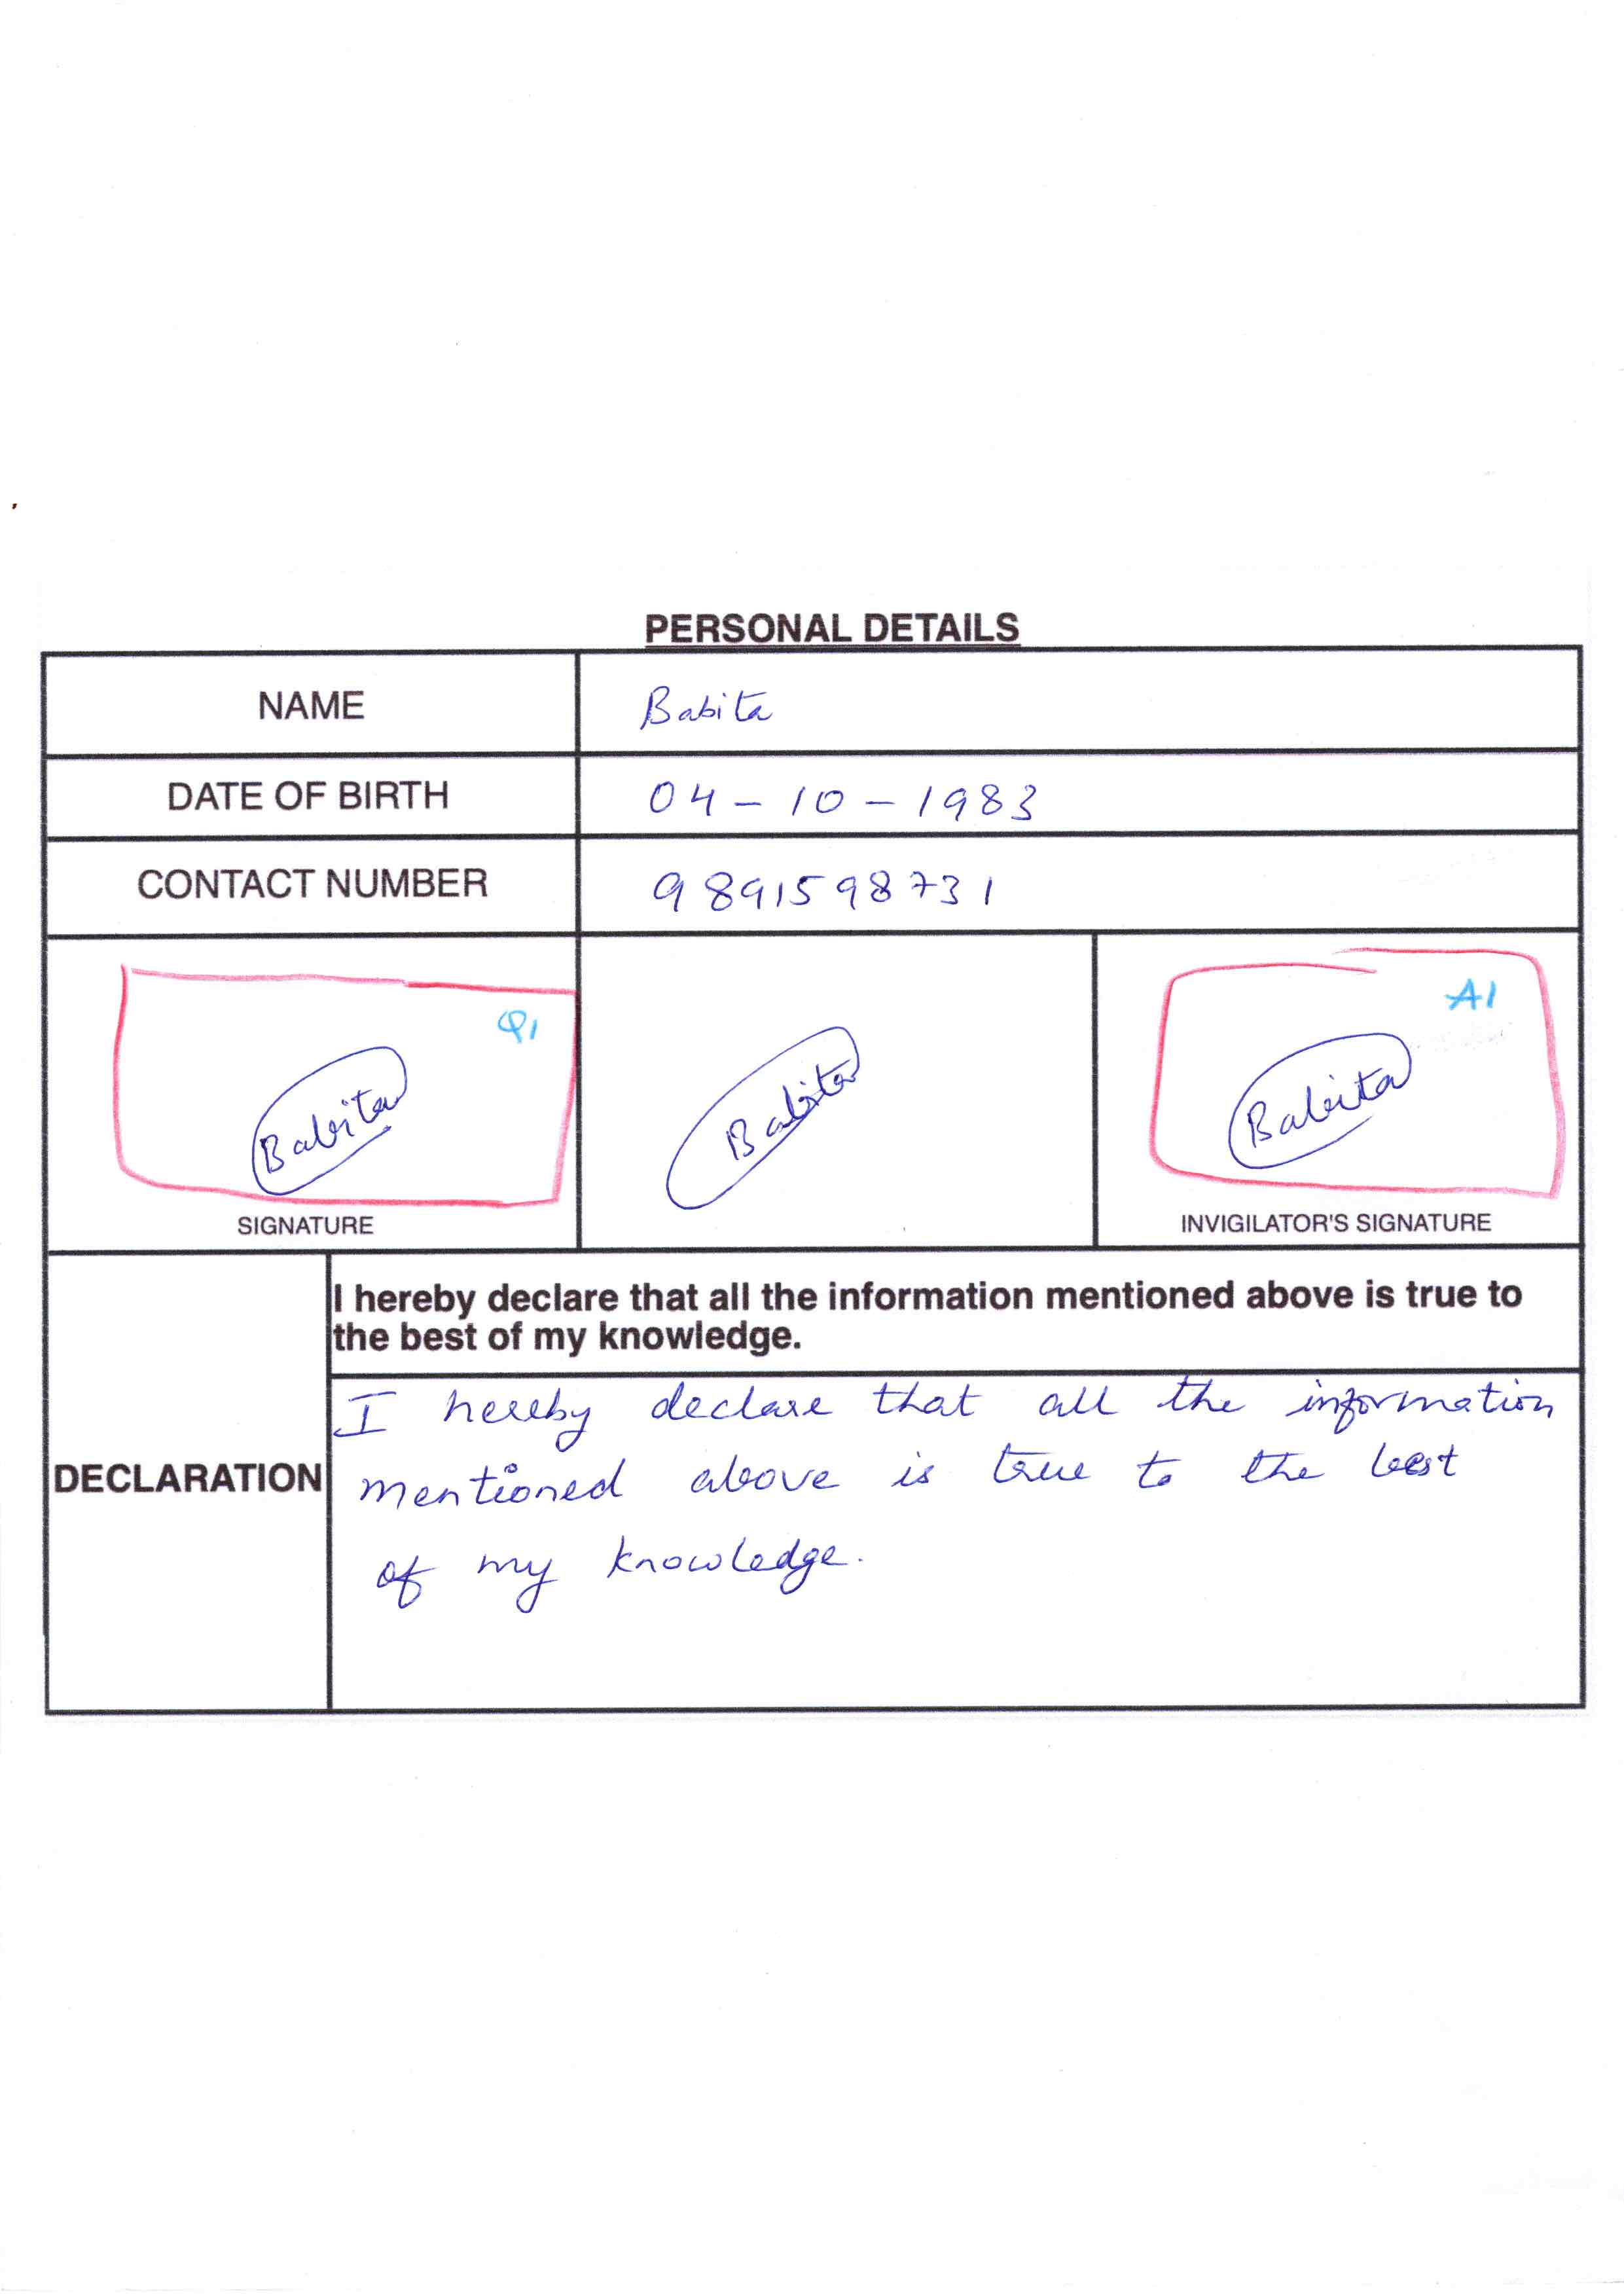 PERSONAL DETAILS
NAME Babita
DATE OF BIRTH 04-10-1983
CONTACT NUMBER 9891598731
Q1 A1
Babita Babita Babita
SIGNATURE INVIGILATOR'S SIGNATURE
I hereby declare that all the information mentioned above is true to
the best of my knowledge.
I hereby declare that all the information
DECLARATION mentioned above is true to the best
of my knowledge.